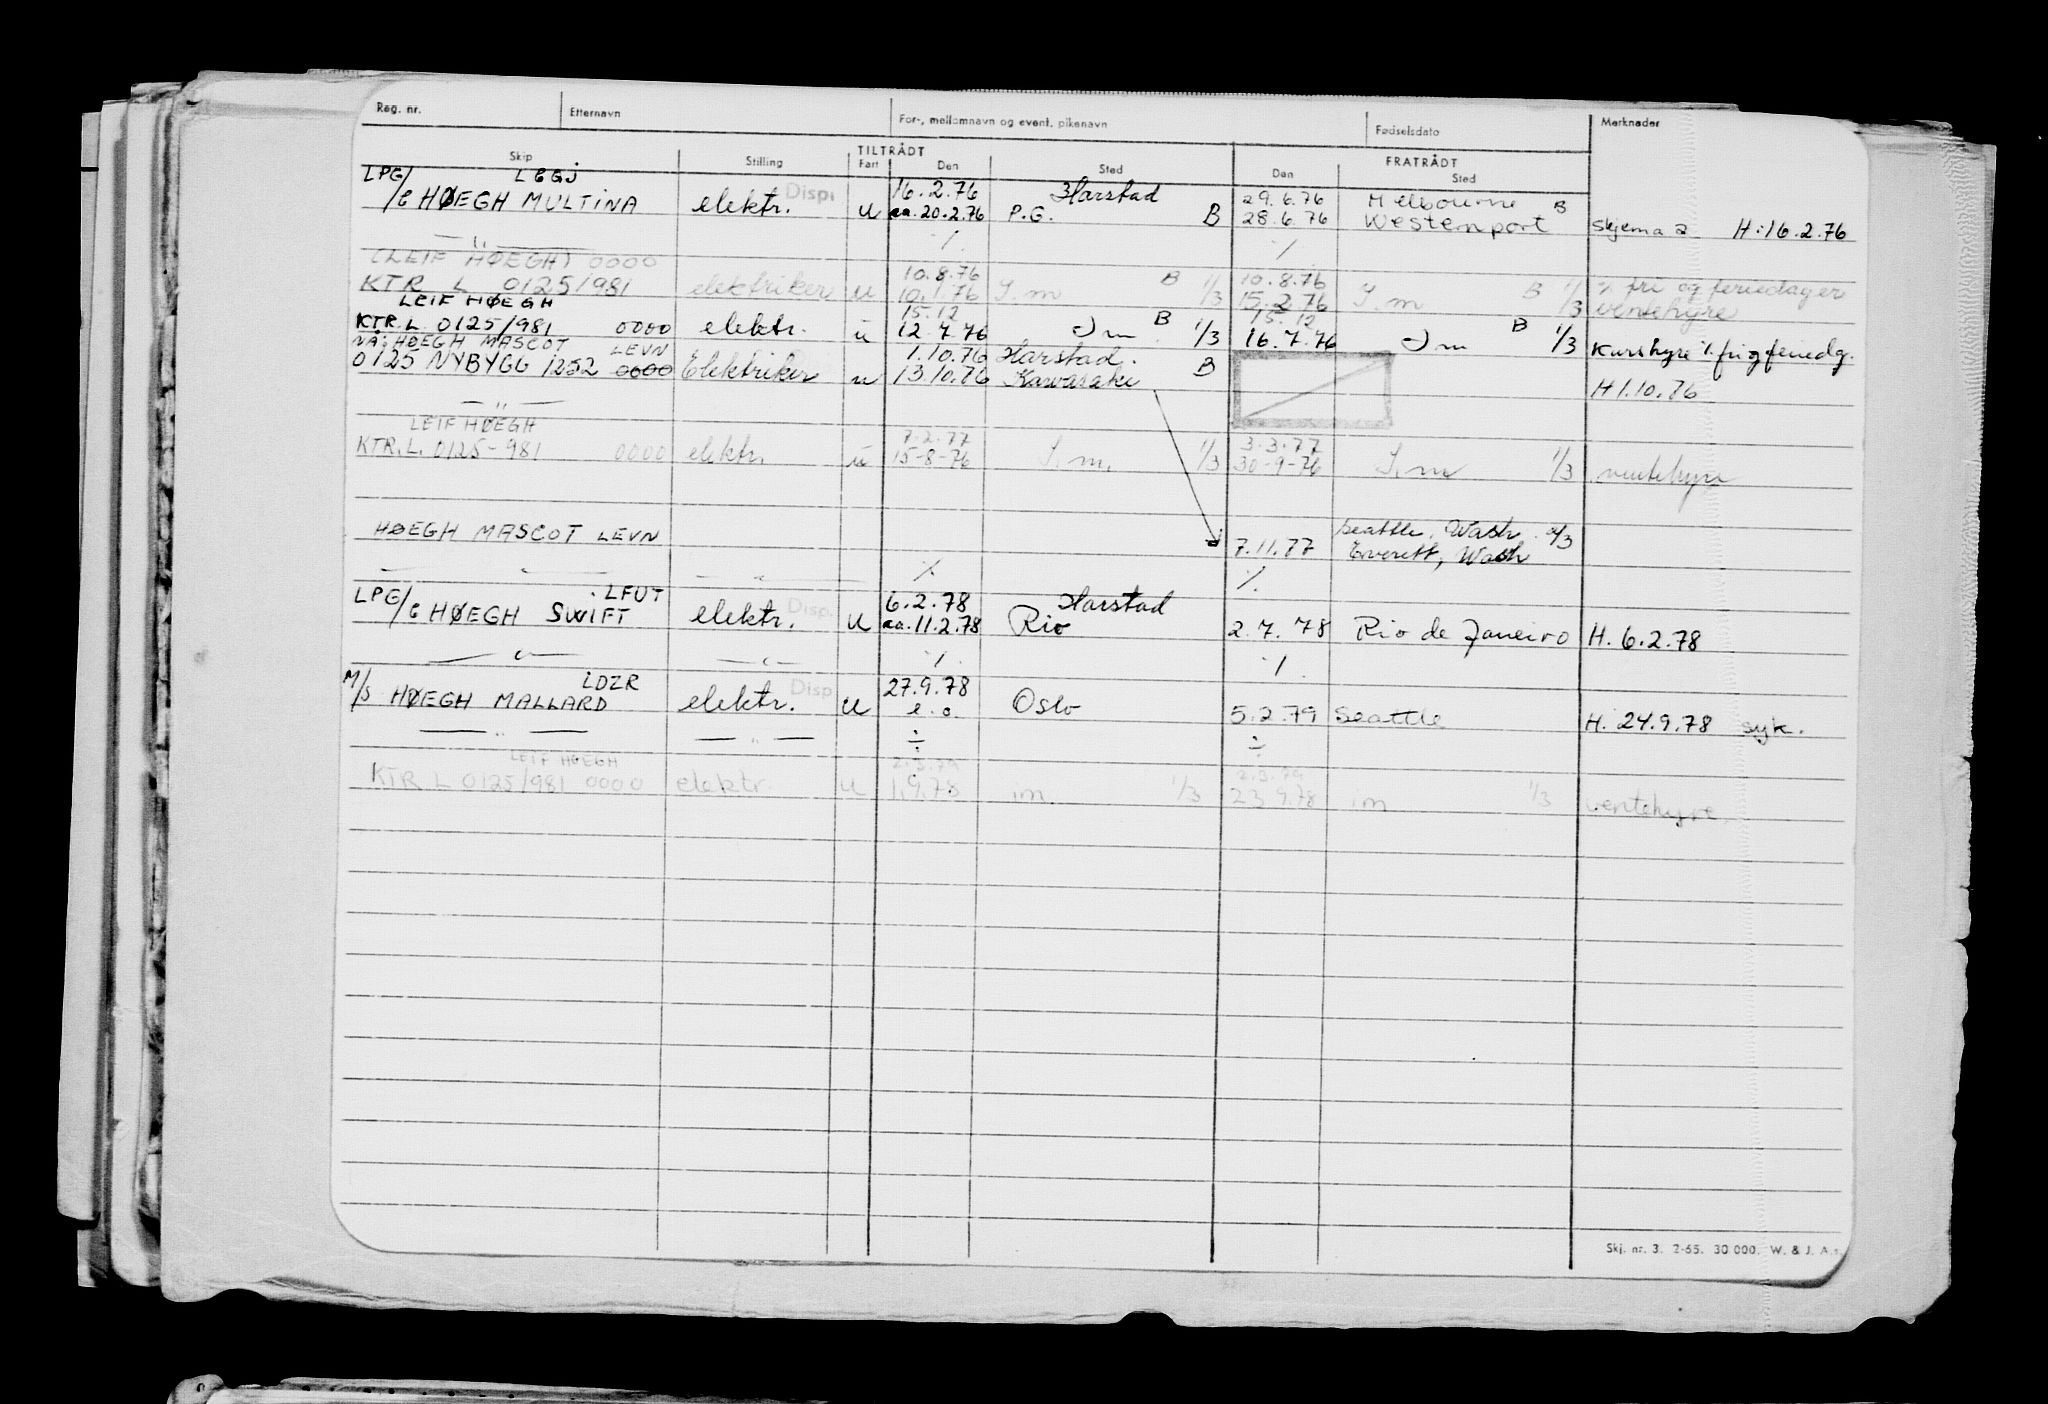 Reg. nr. Etternavn For-, mellomnavn og event. pikenavn Fødselsdato Merknader
TILTRÅDT FRATRÅDT
Skip Stilling Fart Den Sted Den Sted
LPG/ LEGJ Disp. 16.2.76 Harstad 29.6.76 Melbourne B
/C HØEGH MULTINA elektr. u ca.20.2.76 P.G. B 28.6.76 Westernport skjema 2 H:16.2.76
— " — ⁒ ⁒
(LEIF HØEGH) 0000 10.8.76 B 1/3 10.8.76 B 1/3 ⁒ fri og feriedager
KTR L 0125/981 elektriker u 10.1.76 I.m 1/3 15.2.76 I.m 1/3 ventehyre
LEIF HØEGH 15.12 B 15.12 B
KTR.L. 0125/981 0000 elektr. u 12.7.76 Im 1/3 16.7.76 Im 1/3 Kurshyre ⁒ fri g feriedg.
NÅ: HØEGH MASCOT LEVN 1.10.76 Harstad. B
0125 NYBYGG 1252 0000 Elektriker u 13.10.76 Kawasaki H 1.10.76
— " —
LEIF HØEGH 7.2.77 3.3.77
KTR.L. 0125-981 0000 elektr. u 15-8-76 I.m. 1/3 30-9-76 I.m 1/3 ventehyre
Seattle, Wash 2/3
HØEGH MASCOT LEVN 7.11.77 Everett, Wash
— " — — " — ⁒ ⁒
LPG/ LFUT Disp. 6.2.78 Harstad
/C HØEGH SWIFT elektr. u ca.11.2.78 Rio 2.7.78 Rio de Janeiro H. 6.2.78
— " — — " — ⁒ ⁒
M/S LDZR Disp. 27.9.78
HØEGH MALLARD elektr. u e.o. Oslo 5.2.79 Seattle H. 24.9.78 syk.
— " — — " — ÷ ÷
LEIF HØEGH 2.3.79 2.3.79
KTR L 0125/981 0000 elektr. u 1.9.78 im 1/3 23.9.78 im 1/3 ventehyre.
Skj. nr. 3. 2-65. 30 000. W. & J. A.s.